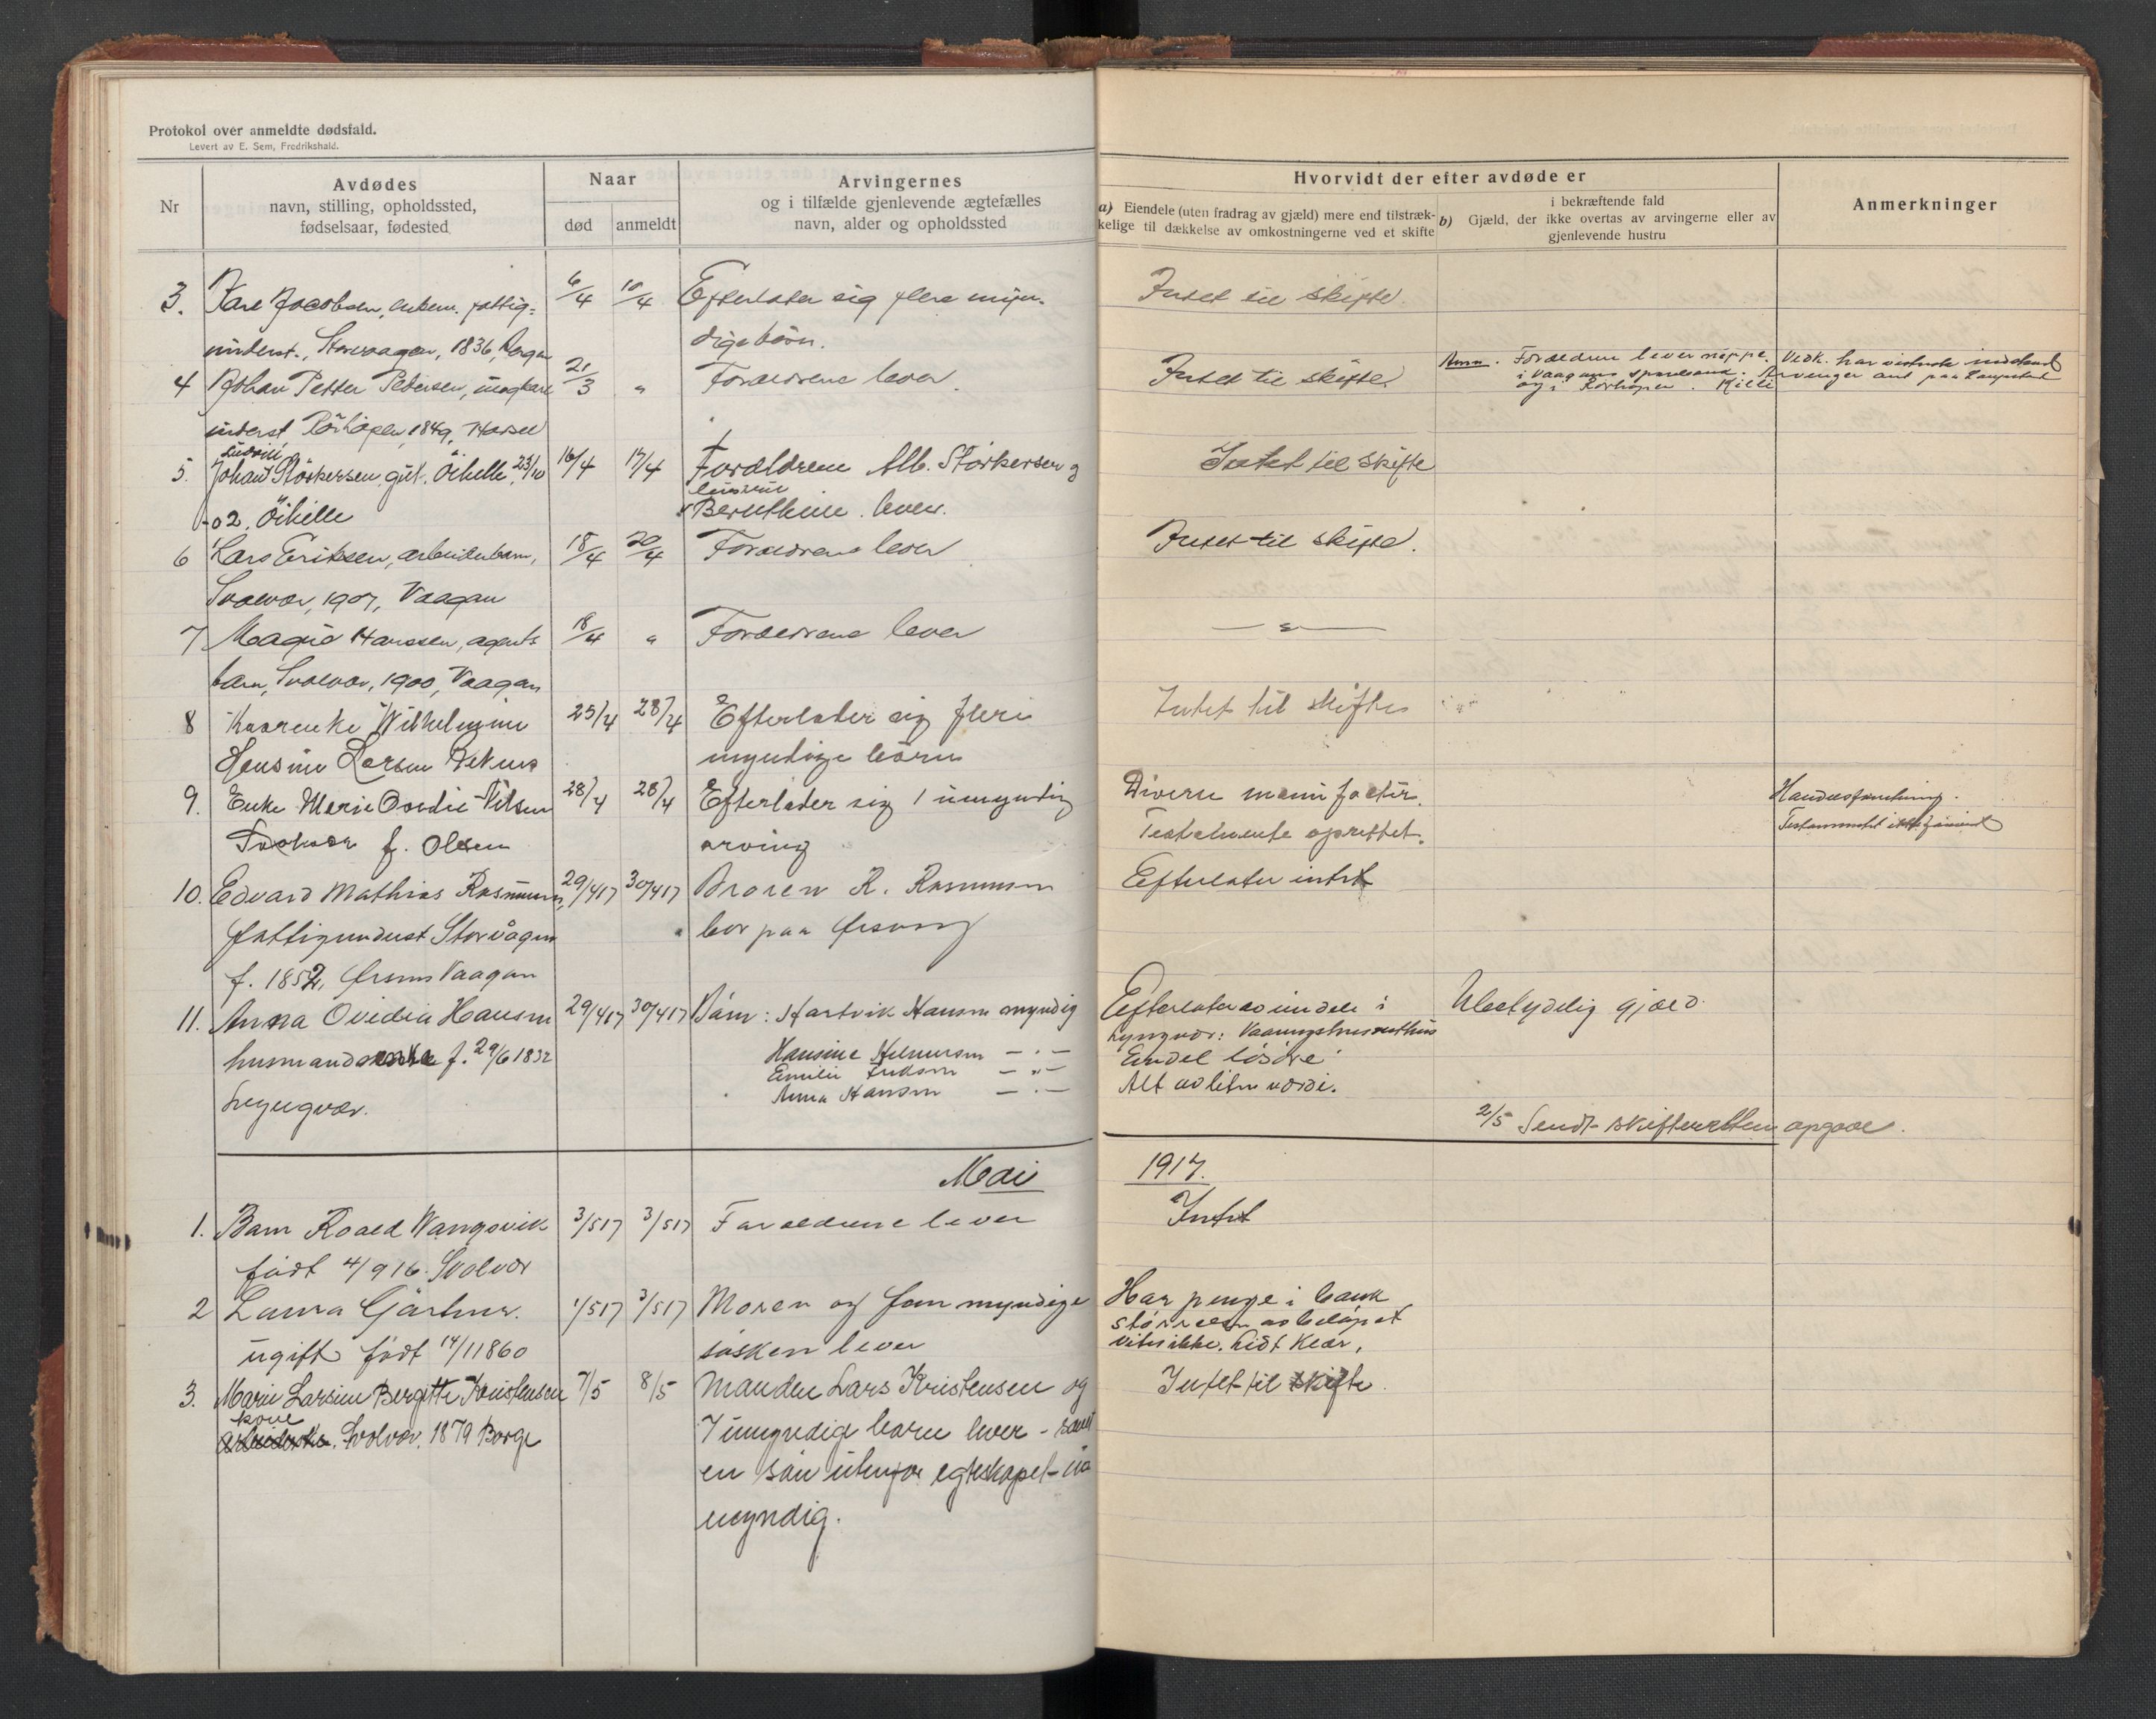 Protokol over anmeldte dødsfald.
Levert av E. Sem, Fredrikshald.
Nr
Avdødes
navn, stilling, opholdssted,
fødselsaar, fødested
Naar
død
anmeldt
Arvingernes
og i tilfælde gjenlevende ægtefælles
navn, alder og opholdssted
Hvorvidt der efter avdøde er
a) Eiendele (uten fradrag av gjæld) mere end tilstræk-
kelige til dækkelse av omkostningerne ved et skifte
i bekræftende fald
b) Gjæld, der ikke overtas av arvingerne eller av
gjenlevende hustru
Anmerkninger
3. Kare Jacobsen, enkem. fattig- 6/4 10/4 Efterlater sig flere myn- Intet til skifte.
underst., Storvaagen, 1836, dige børn.
4 Johan Petter Pedersen, ungkarl 21/3 " Forældrene lever. Intet til skifte Anm. Forældrene lever neppe. Vedk. har indskud
i Vaagans sparebank. Arvinger
og i
underst, 1849,
5. Johan Ludvik Störkersen, gut, Öihelle, 23/10 16/4 17/4 Forældrene Alb. Störkersen og Intet til skifte
-02, Öihelle Bernthine lever.
6 Lars Eriksen, arbeiderbarn, 18/4 20/4 Forældrene lever Intet til skifte.
Svolvær, 1907, Vaagan
7 Magne Hanssen, agents 18/4 " Forældrene lever — " —
barn, Svolvær, 1900, Vaagan
8 Wilhelmine 25/4 28/4 Efterlater sig flere Intet til skifte
Hansine Larsen myndige börn
9. Enke Marie Ovedie Nilsen 28/4 28/4 Efterlater sig 1 umyndig Diverse manifactur. Handelsforretning.
Svolvær f. Olsen arving Testamente oprettet. Testamentet ikke
10. Edvard Mathias Rasmussen, 29/4 17 30/4 17 Broren R. Rasmussen Efterlater intet
fattigunderst Storvågen bor paa
f. 1852, Vaagan
11. Anna Ovidia Hansen 29/4 17 30/4 17 Barn: Hartvik Hansen myndig Efterlater eiendele i Ubetydelig gjæld.
husmandsenke f. 29/6 1832 Hansine — " — Lyngvær: Vaaningshus
Emilie — " — Endel lösöre
Lyngvær. Anna Hansen — " — Alt av liten værdi.
2/5 Sendt skifteretten opgave.
Mai 1917.
1. Barn Roald Wangsvik 3/5 17 3/5 17 Forældrene lever Intet
födt 4/9 16. Svolvær
2 Laura Gärtner. 1/5 17 3/5 17 Moren og fem myndige Har penge i bank
ugift födt 14/11 1860 sösken lever störrelsen av belöpet
vites ikke. Lidt klær,
3. Marie Larsine Bergitte Kristensen 7/5 8/5 Manden Lars Kristensen og Intet til skifte.
kone Svolvær, 1879 Borge 7 umyndige barn lever - samt
en sön utenfor egteskapet - u-
myndig.